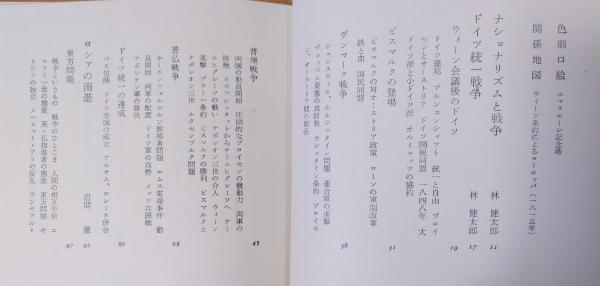 色刷口絵 エマヌエーレ記念塔
関係地図 ウィーン条約によるヨーロッパ(一八一五年)
ナショナリズムと戦争 林 健太郎 11
ドイツ統一戦争 林 健太郎 17
ウィーン会議後のドイツ 19
ドイツ連邦 ブルシェンシャフト 統一と自由 プロイ
センとオーストリア ドイツ関税同盟 一八四八年 大
ドイツ派と小ドイツ派 オルミュッツの協約
ビスマルクの登場 31
ビスマルクの対オーストリア政策 ローンの軍制改革
鉄と血 国民同盟
デンマーク戦争 38
シュレスヴィヒ、ホルシュタイン問題 連合軍の進撃
デュッペル要塞の攻防戦 ガシュタイン条約 プロイセ
ン、オーストリア間の緊張
普墺戦争 45
両国の動員開始 圧倒的なプロイセンの機動力 両軍の
接触 ヨゼフシュタットからケーニヒグレーツへ ケー
ニヒグレーツの戦い ナポレオン三世の介入 ウィーン
進撃 プラーハ条約 ビスマルクの勝利 ビスマルクと
ナポレオン三世 ルクセンブルク問題
普仏戦争 68
ホーエンツォレルン候補者問題 エムス電報事件 動
員開始 両軍の配置 ドイツ軍の攻勢 メッツ攻囲戦
ナポレオン軍の降伏
ドイツ統一の達成 86
パリ包囲 ドイツ帝国の成立 アルザス、ロレーヌ併合
ロシアの南進 岩間 徹 95
東方問題 97
戦争というもの 戦争のひとこま 人間の相互不信 ニ
コライ一世の態度 英・仏指導者の態度 東方問題 ギ
リシアの独立 メヘメット・アリの反乱 ウンキアル・